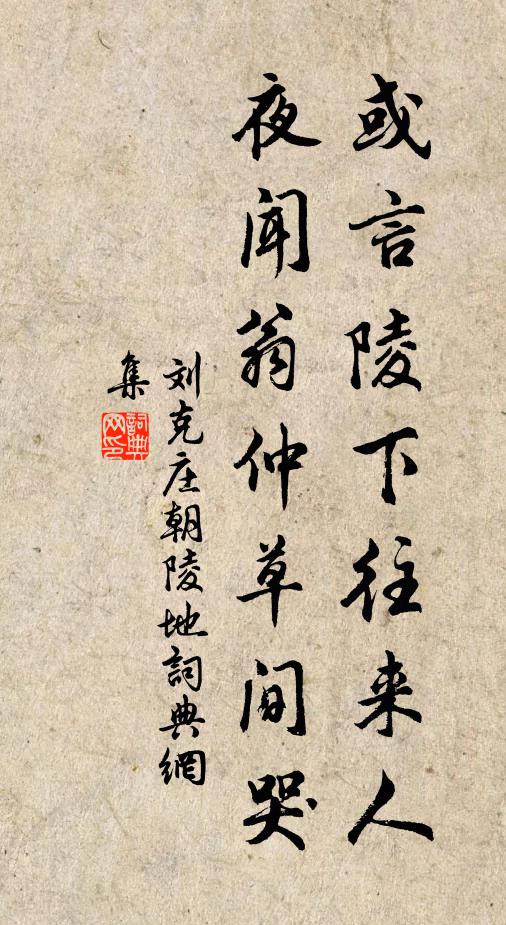 或言陵下往来人
夜闻翁仲草间哭
刘克庄朝陵地詞典網
集
詞典网印